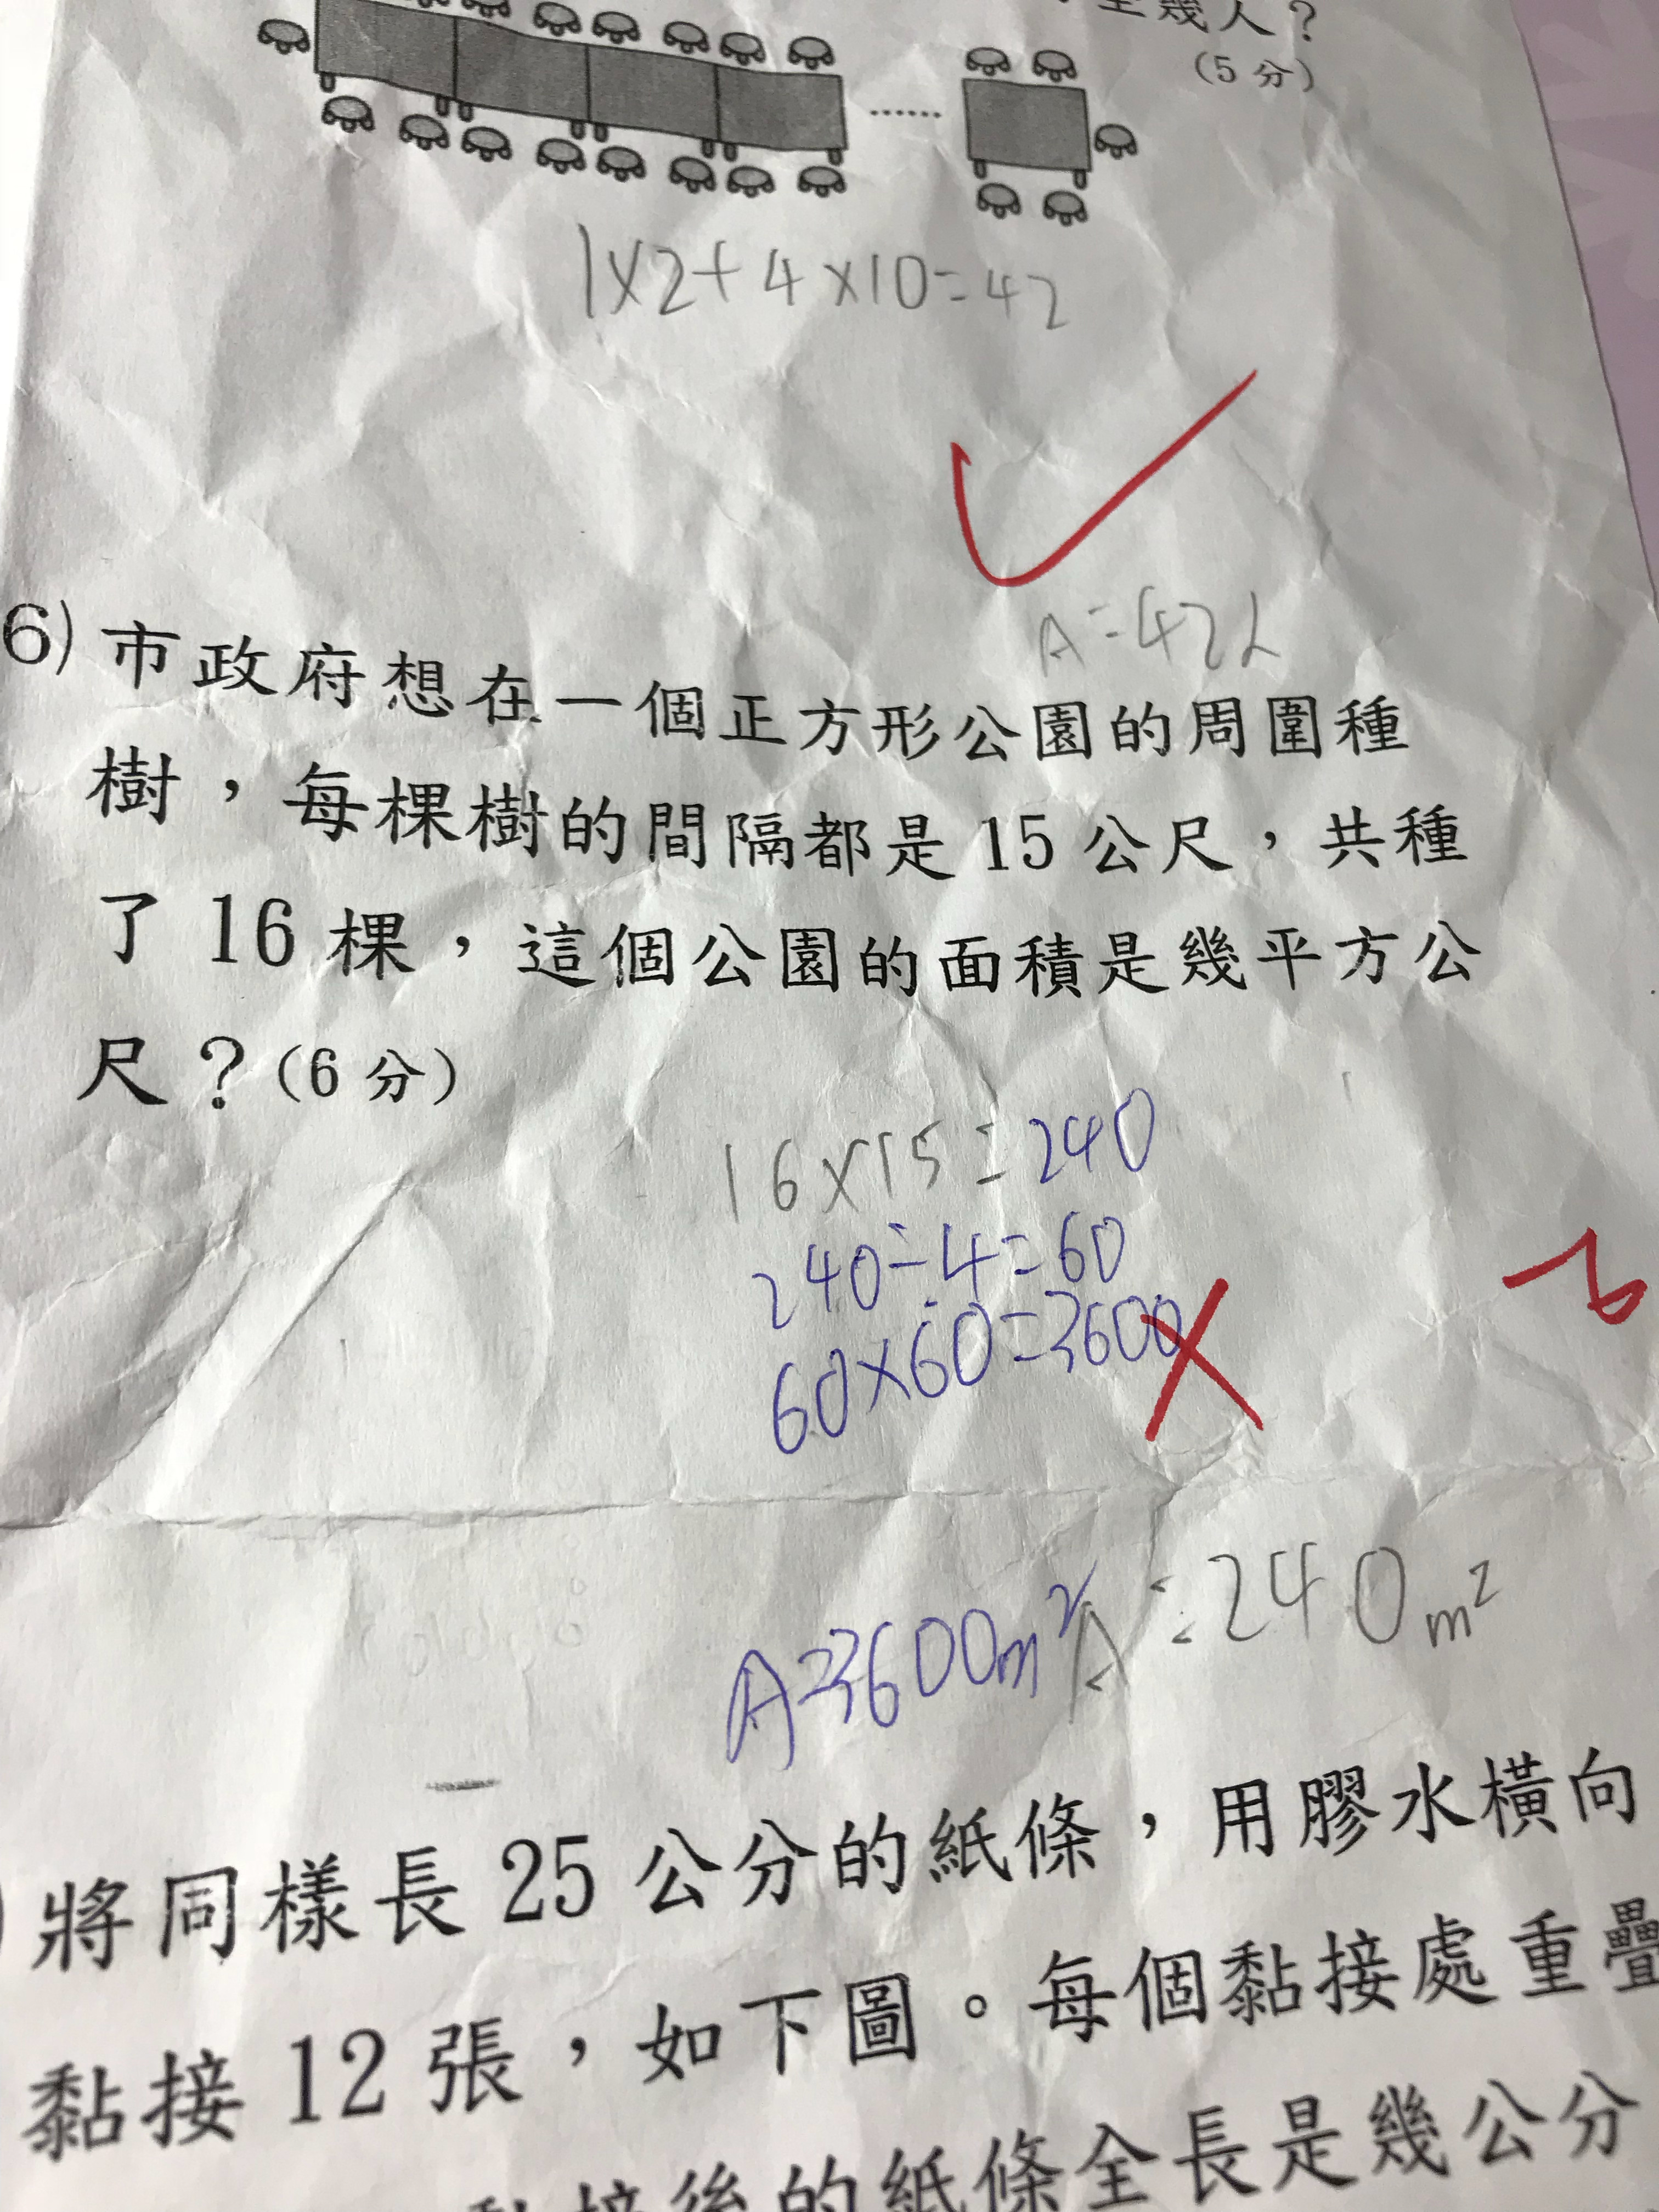 幾人？
(5分)
1×2+4×10=42
A=42人
6) 市政府想在一個正方形公園的周圍種
樹，每棵樹的間隔都是15公尺，共種
了16棵，這個公園的面積是幾平方公
尺？(6分)
16×15=240
240÷4=60
60×60=3600
-6
A=3600m²
A=240m²
)將同樣長25公分的紙條，用膠水橫向
黏接12張，如下圖。每個黏接處重疊
接後的紙條全長是幾公分